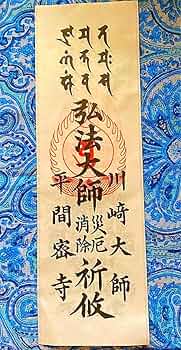 川崎大師
弘法大師
災厄
消除
祈攸
平間密寺